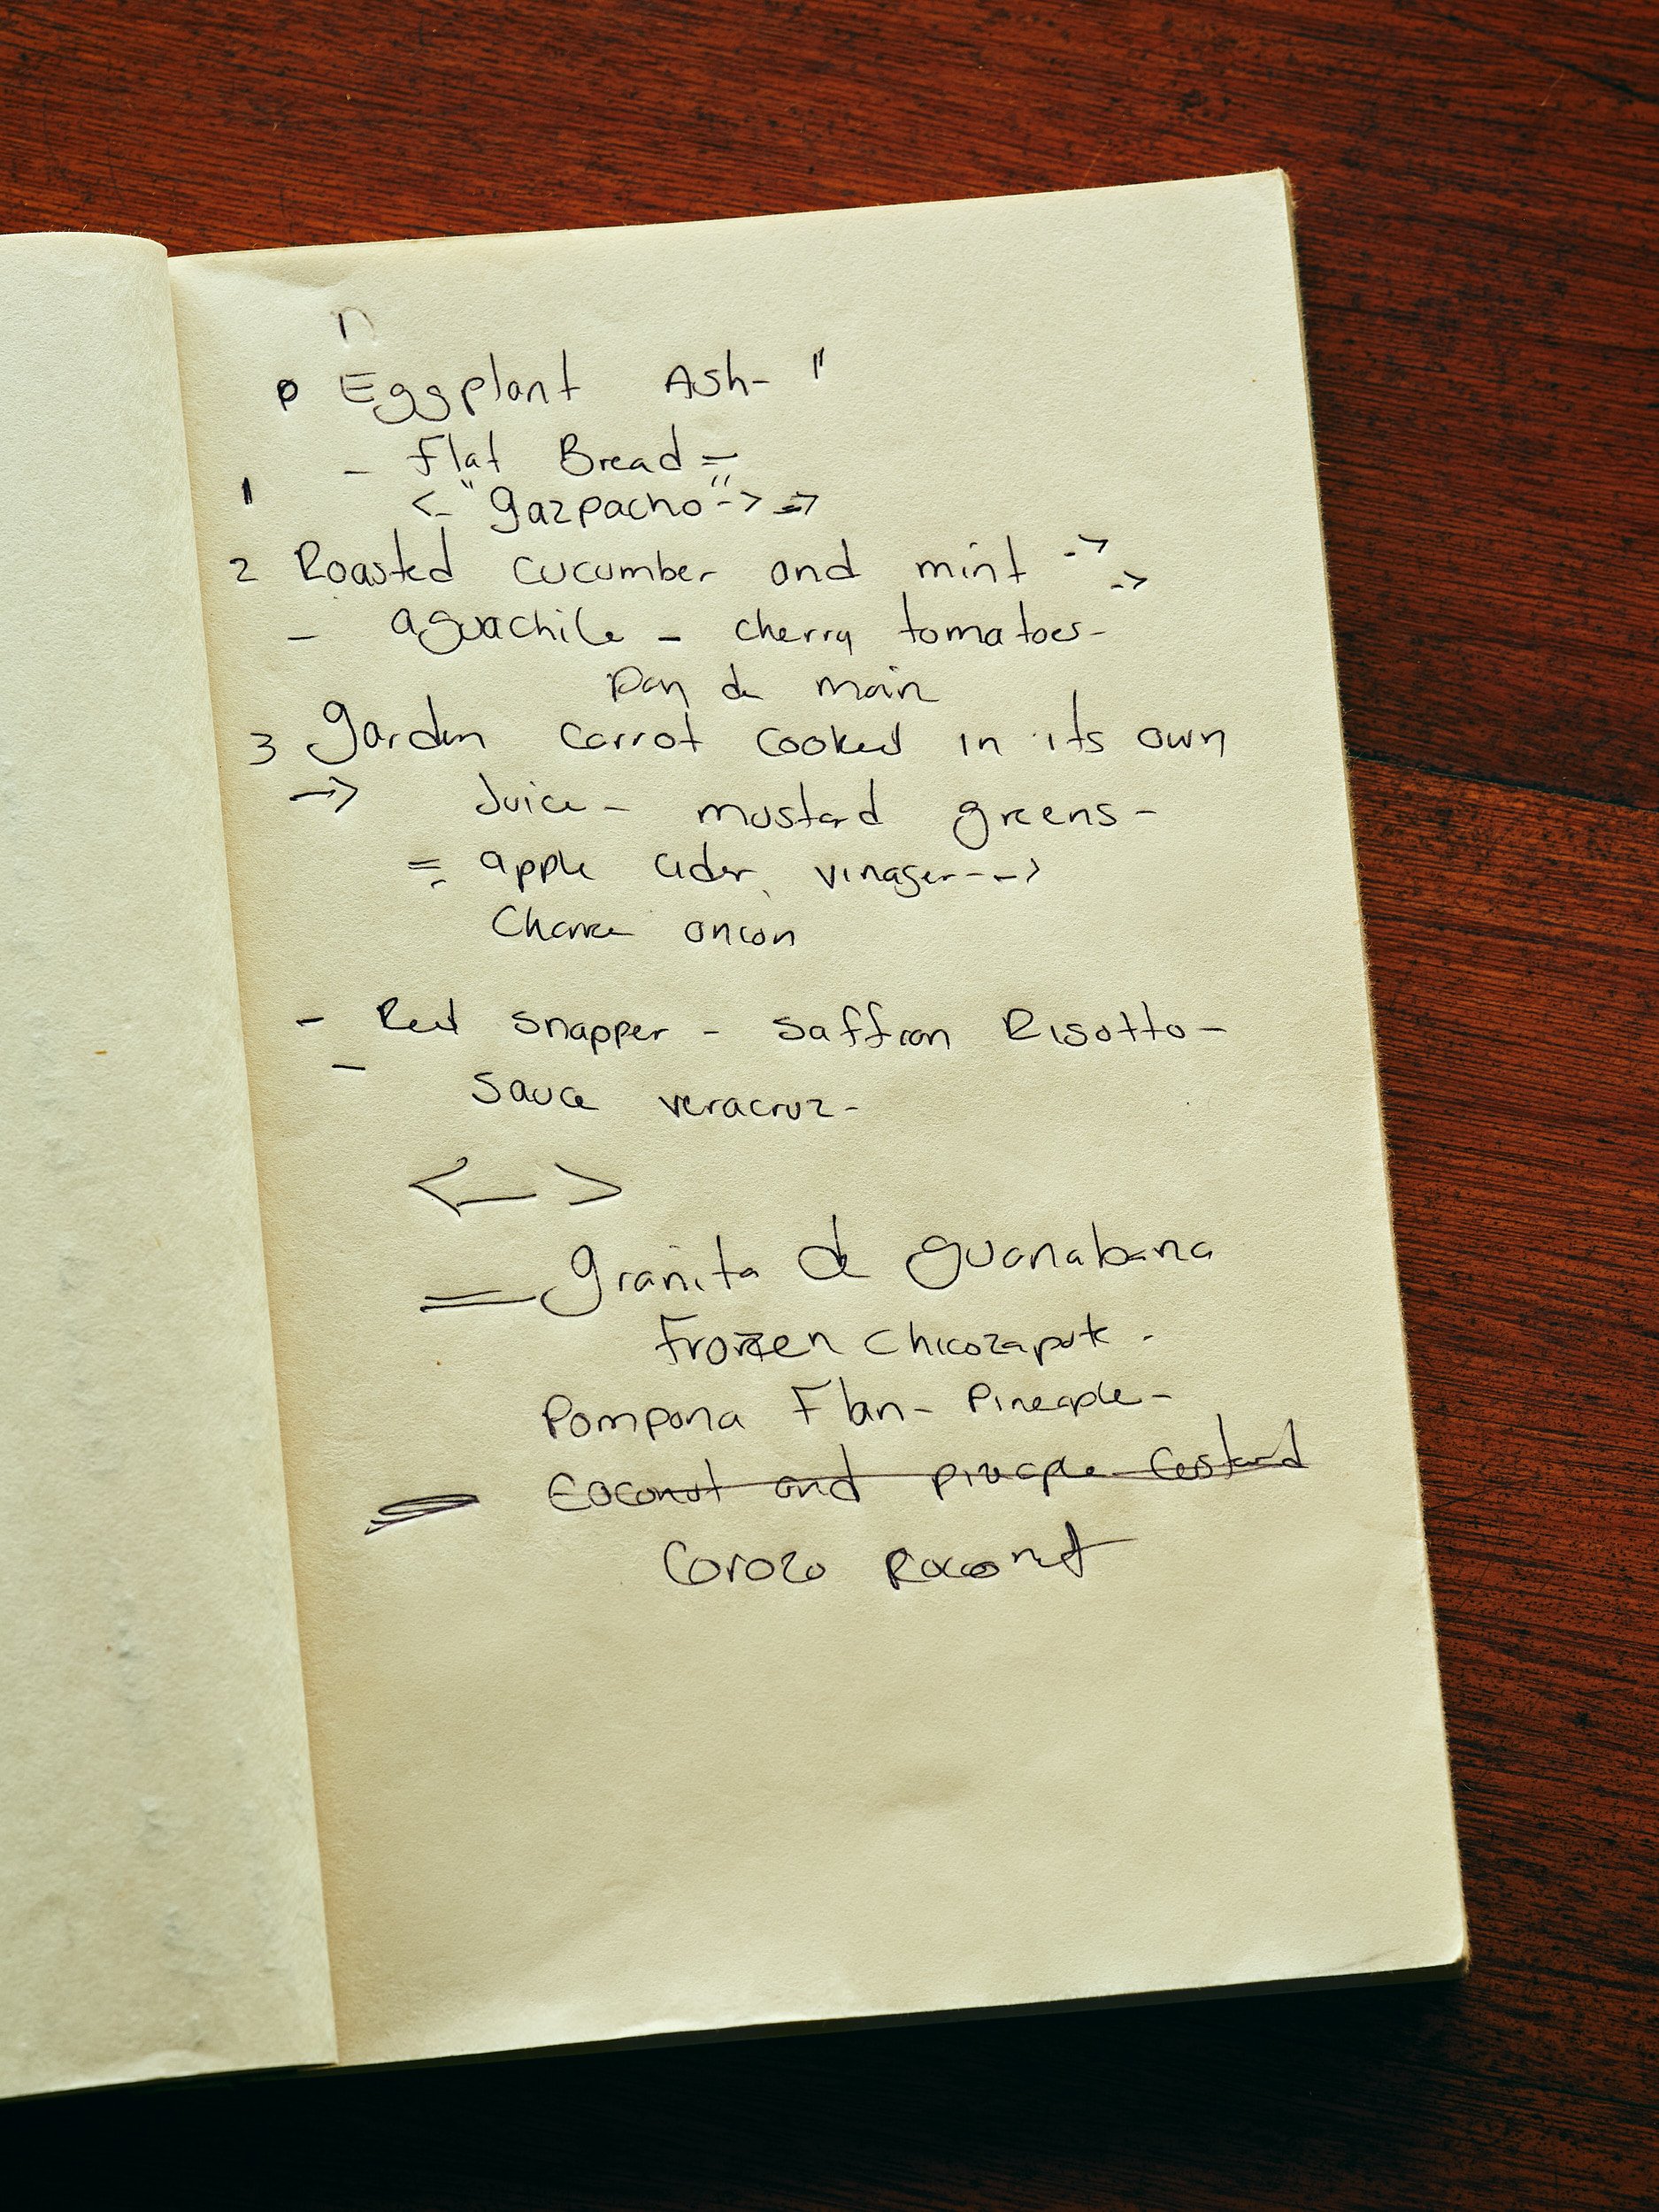 Eggplant Ash- "
- Flat Bread =
1
<- "gazpacho" -> ->
2 Roasted cucumber and mint -> ->
- aguachile - cherry tomatoes-
pan de
3 garden carrot cooked in its own
-> Juice - mustard greens -
= apple cider vinager --->
onion
- Red snapper - saffron Risotto -
- Sauce veracruz -
<- >
= granita de guanabana
Frozen chicozapote -
Pompona Flan - Pineaple -
Coconut and pineaple custard
Corozo